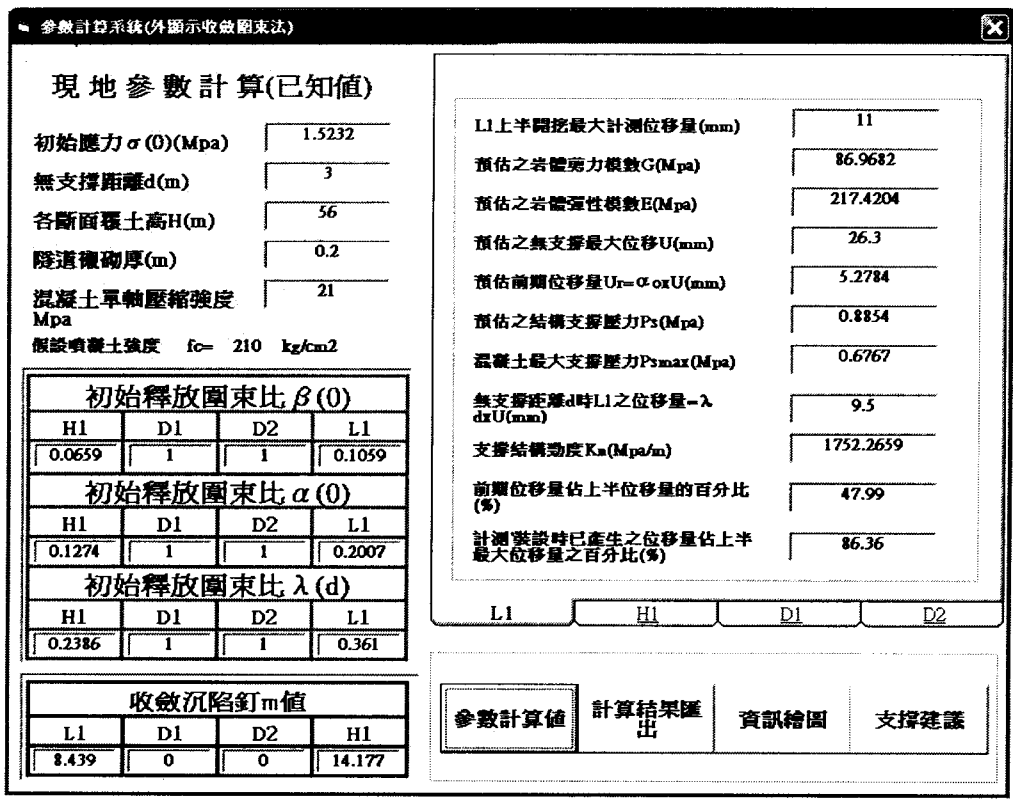 參數計算系統(外顯示收斂圍束法)
現地參數計算(已知值)
初始應力σ(0)(Mpa) 1.5232
無支撐距離d(m) 3
各斷面覆土高H(m) 56
隧道襯砌厚(m) 0.2
混凝土單軸壓縮強度 21
Mpa
假設噴凝土強度 fc= 210 kg/cm2
初始釋放圍束比β(0)
H1 D1 D2 L1
0.0659 1 1 0.1059
初始釋放圍束比α(0)
H1 D1 D2 L1
0.1274 1 1 0.2007
初始釋放圍束比λ(d)
H1 D1 D2 L1
0.2386 1 1 0.361
收斂沉陷釘m值
L1 D1 D2 H1
8.439 0 0 14.177
L1上半開挖最大計測位移量(mm) 11
預估之岩體剪力模數G(Mpa) 86.9682
預估之岩體彈性模數E(Mpa) 217.4204
預估之無支撐最大位移U(mm) 26.3
預估前期位移量Ur=αoxU(mm) 5.2784
預估之結構支撐壓力Ps(Mpa) 0.8854
混凝土最大支撐壓力Psmax(Mpa) 0.6767
無支撐距離d時L1之位移量=λ
dxU(mm) 9.5
支撐結構勁度Ks(Mpa/m) 1752.2659
前期位移量佔上半位移量的百分比
(%) 47.99
計測裝設時已產生之位移量佔上半
最大位移量之百分比(%) 86.36
L1 H1 D1 D2
參數計算值 計算結果匯
出 資訊繪圖 支撐建議